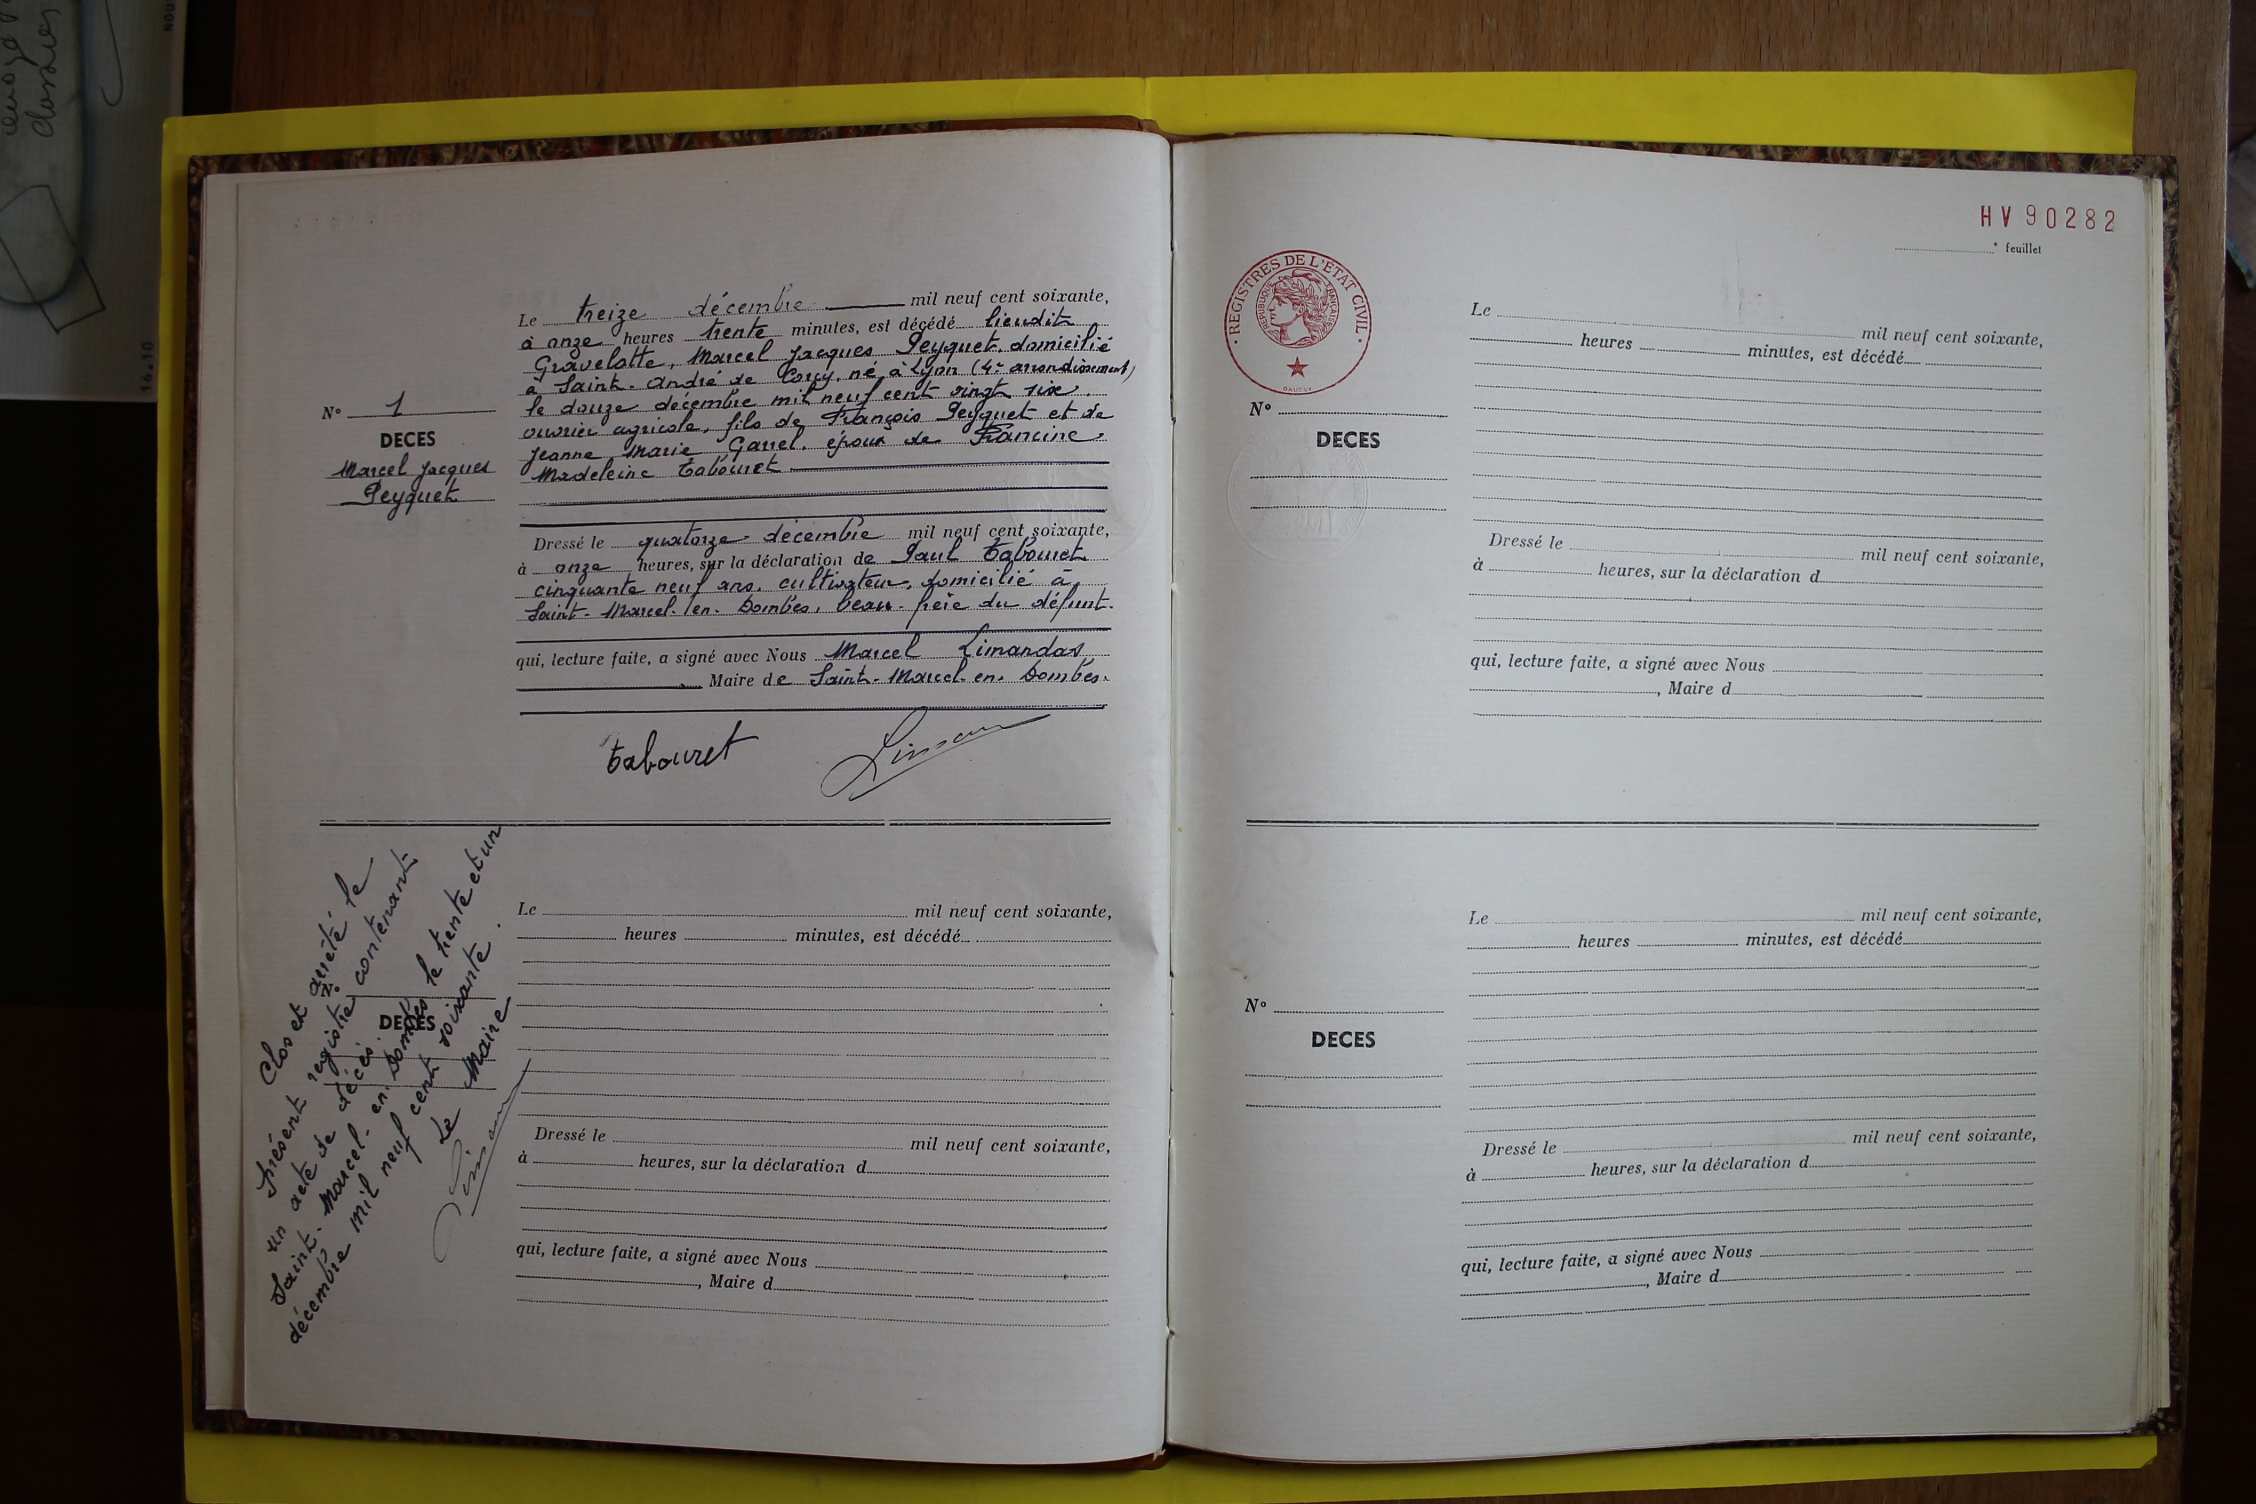 N° 1
DECES
Marcel Jacques
Peyquet
Le treize décembre mil neuf cent soixante,
à onze heures trente minutes, est décédé lieudit
Gravelotte, Marcel Jacques Peyquet, domicilié
à Saint-André de Corcy, né à Lyon (4e arrondissement)
le douze décembre mil neuf cent vingt six,
ouvrier agricole, fils de François Peyquet et de
Jeanne Marie Garrel, époux de Francine
Madeleine Tabouret
Dressé le quatorze décembre mil neuf cent soixante,
à onze heures, sur la déclaration de Paul Tabouret
cinquante neuf ans, cultivateur, domicilié à
Saint-Marcel-en-Dombes, beau-frère du défunt.
qui, lecture faite, a signé avec Nous Marcel Limandas
Maire de Saint-Marcel-en-Dombes.
Tabouret
Clos et arrêté le
présent registre contenant
un acte de décès.
Saint-Marcel-en-Dombes le trente et un
décembre mil neuf cent soixante.
Le Maire
N°
DECES
Le mil neuf cent soixante,
heures minutes, est décédé
Dressé le mil neuf cent soixante,
à heures, sur la déclaration d
qui, lecture faite, a signé avec Nous
, Maire d
HV 90282
e feuillet
REGISTRES DE L'ÉTAT CIVIL
RÉPUBLIQUE FRANÇAISE
N°
DECES
Le mil neuf cent soixante,
heures minutes, est décédé
Dressé le mil neuf cent soixante,
à heures, sur la déclaration d
qui, lecture faite, a signé avec Nous
, Maire d
N°
DECES
Le mil neuf cent soixante,
heures minutes, est décédé
Dressé le mil neuf cent soixante,
à heures, sur la déclaration d
qui, lecture faite, a signé avec Nous
, Maire d